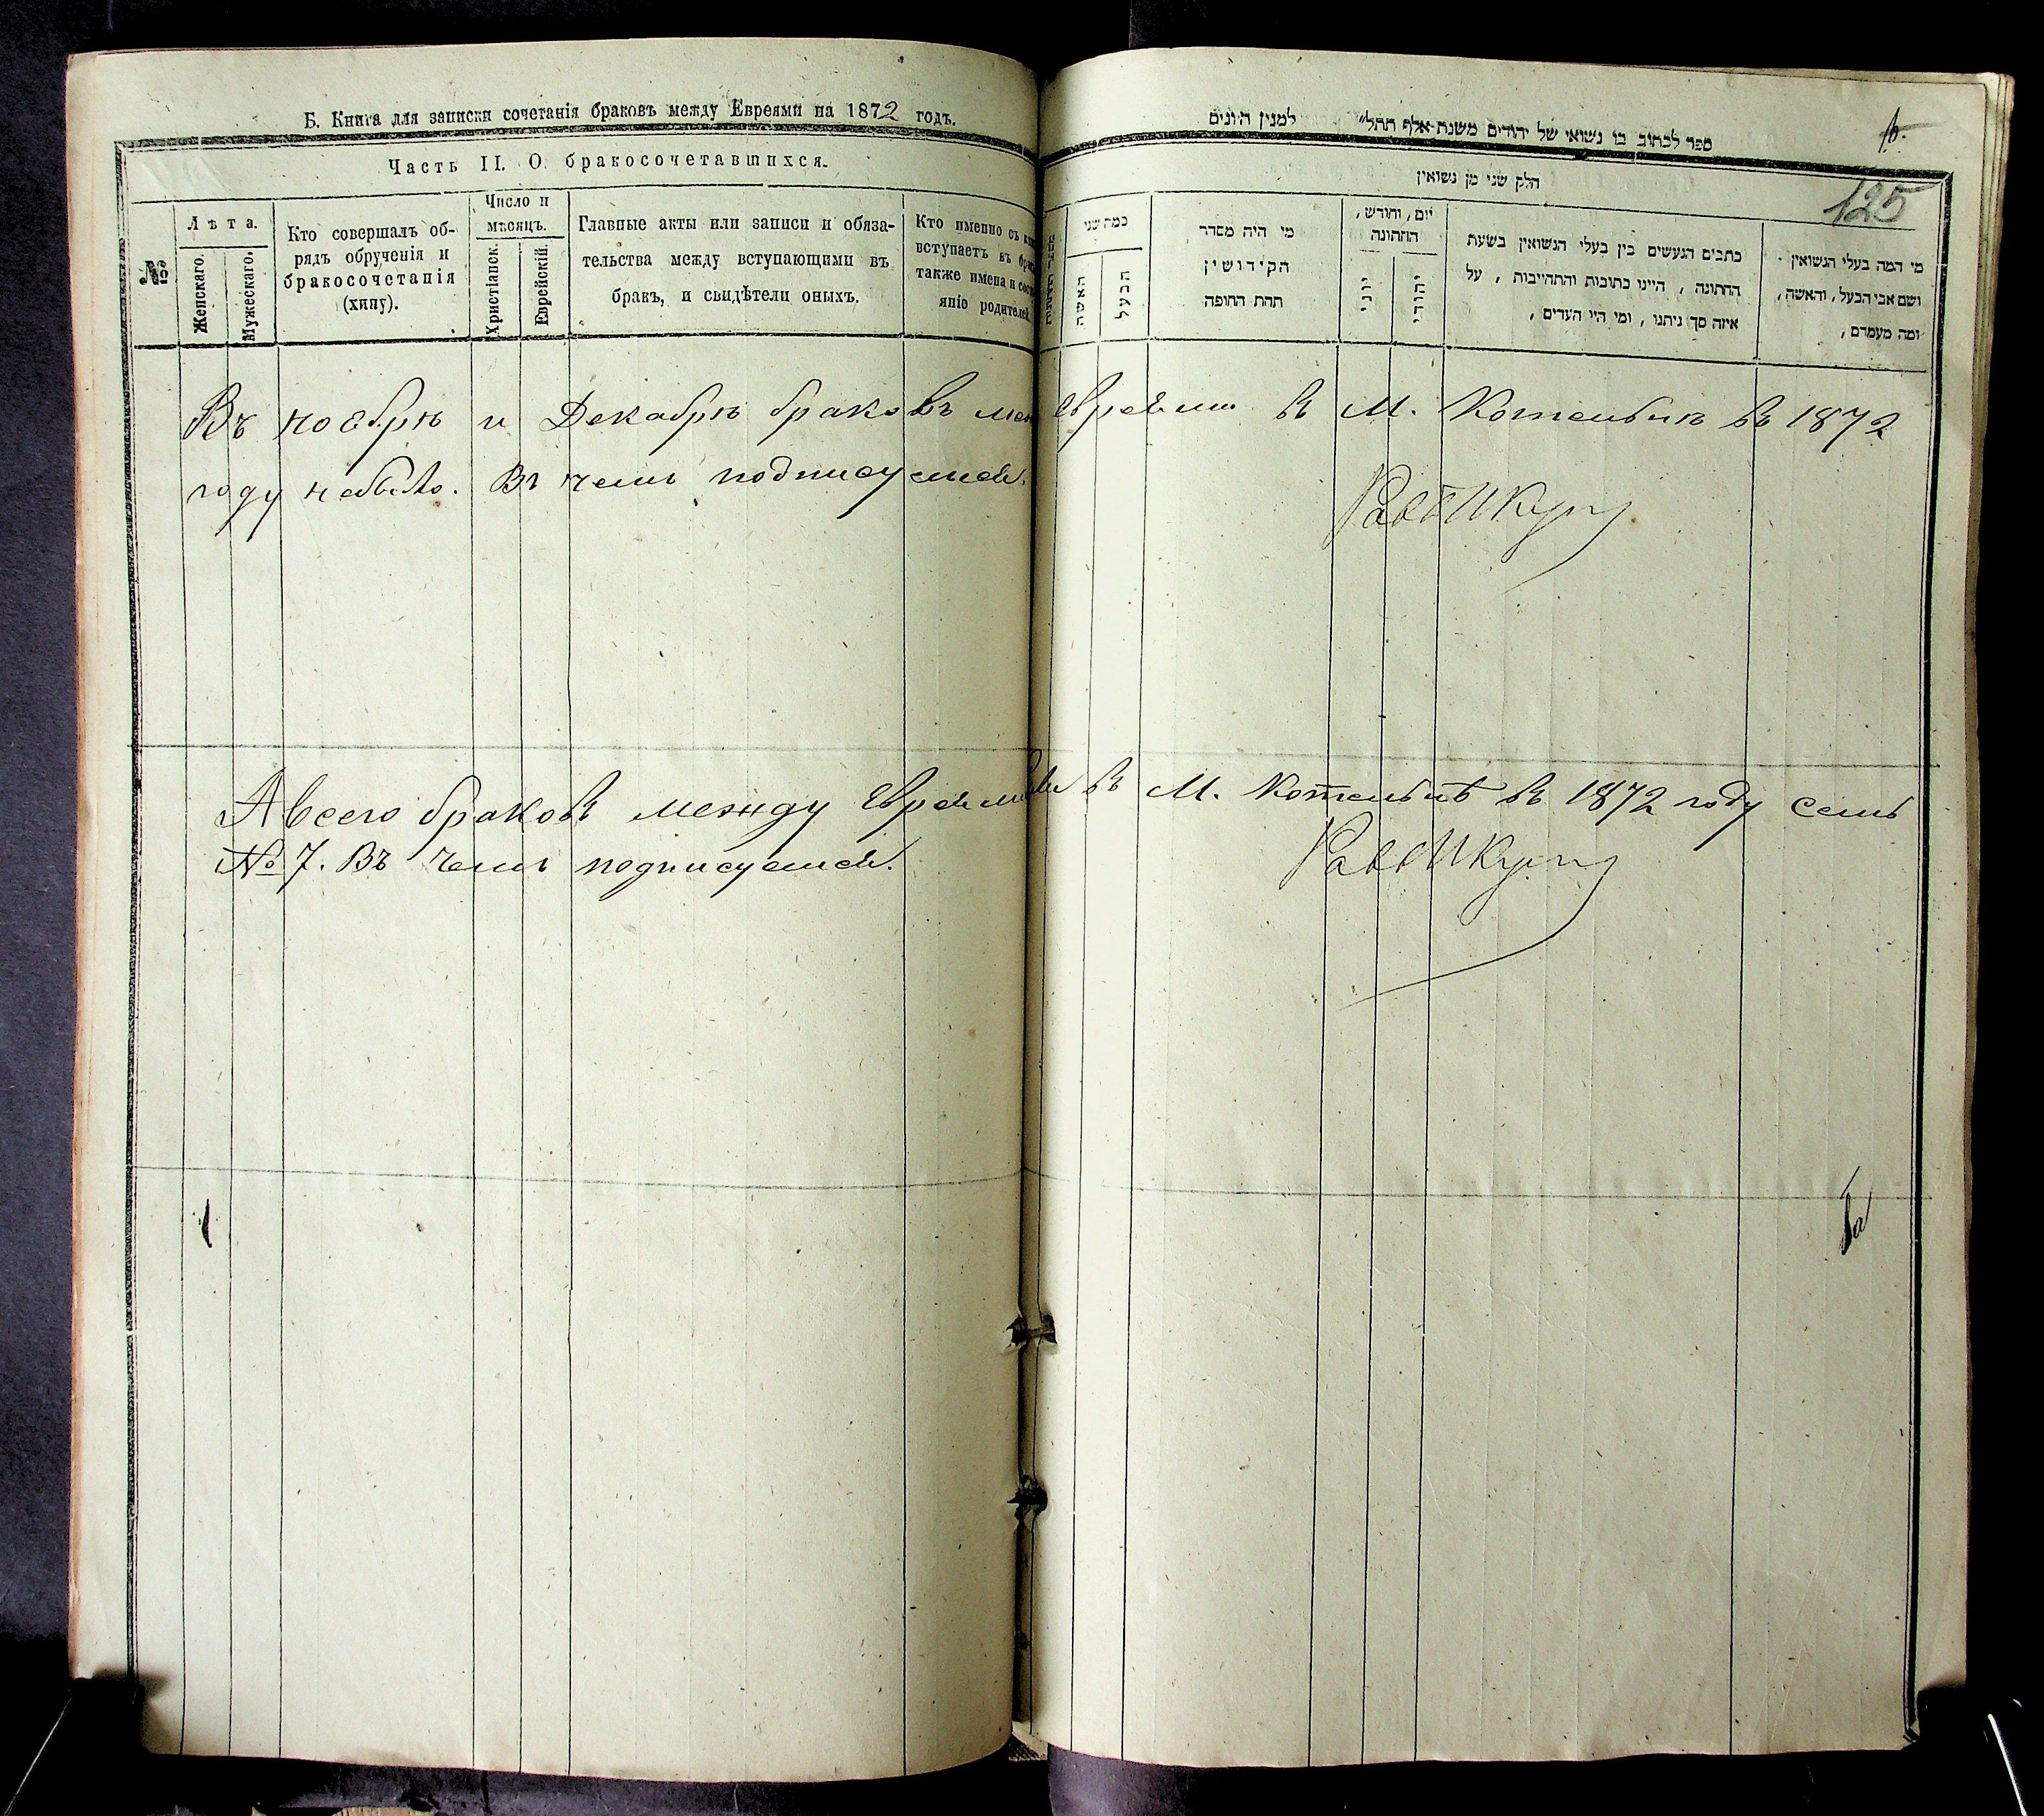 Б. Книга для записки сочетанія браковъ между Евреями на 1872 годъ.
Часть II. О бракосочетавшихся.
№
Лѣта.
Женскаго.
Мужескаго.
Кто совершалъ об-
рядъ обрученія и
бракосочетанія
(хипу).
Число и
мѣсяцъ.
Христіанск.
Еврейскій.
Главные акты или записи и обяза-
тельства между вступающими въ
бракъ, и свидѣтели оныхъ.
Кто именно съ
вступаетъ въ
также имена и
яніе родителей.
ספר לכתוב בו נשואי של יהודים משנת אלף תתל״ למנין היונים
125
חלק שני מן נשואין
כמה שני
האשה
הבעל
מי היה מסדר
הקידושין
תחת החופה
יום, וחודש,
החתונה
יוני
יהודי
כתבים הנעשים בין בעלי הנשואין בשעת
החתונה, היינו כתובות והתחייבות, על
איזה סך ניתנו, ומי היו העדים,
מי המה בעלי הנשואין.
ושם אבי הבעל, והאשה,
ומה מעמדם,
Въ ноябрѣ и Декабрѣ браковъ евреями въ М. Котельнѣ въ 1872
году небыло. Въ чемъ подписуемся.
Авсего браковъ между евреями въ М. Котельнѣ въ 1872 году семь
№ 7. Въ чемъ подписуемся.